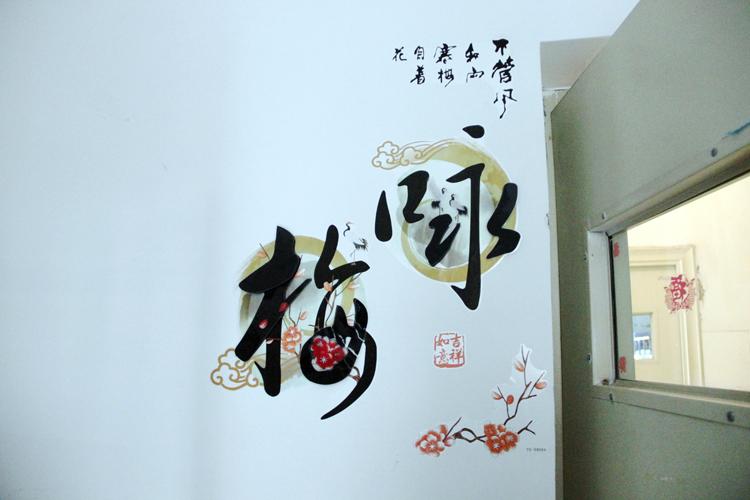 不管风
和雨
寒梅
自着
花
咏
梅
吉祥
如意